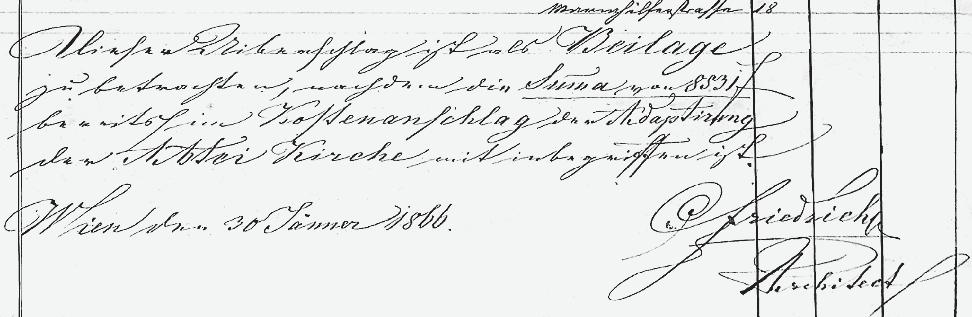 Mariahilferstrasse 18
Dieser Uiberschlag ist als Beilage
zu betrachten, nachdem die Suma von 8531 f
bereits im Kostenanschlag der Adaptirung
der Abtei Kirche mit inbegriffen ist.
Wien den 30 Jänner 1866.
Friedrich
Architect